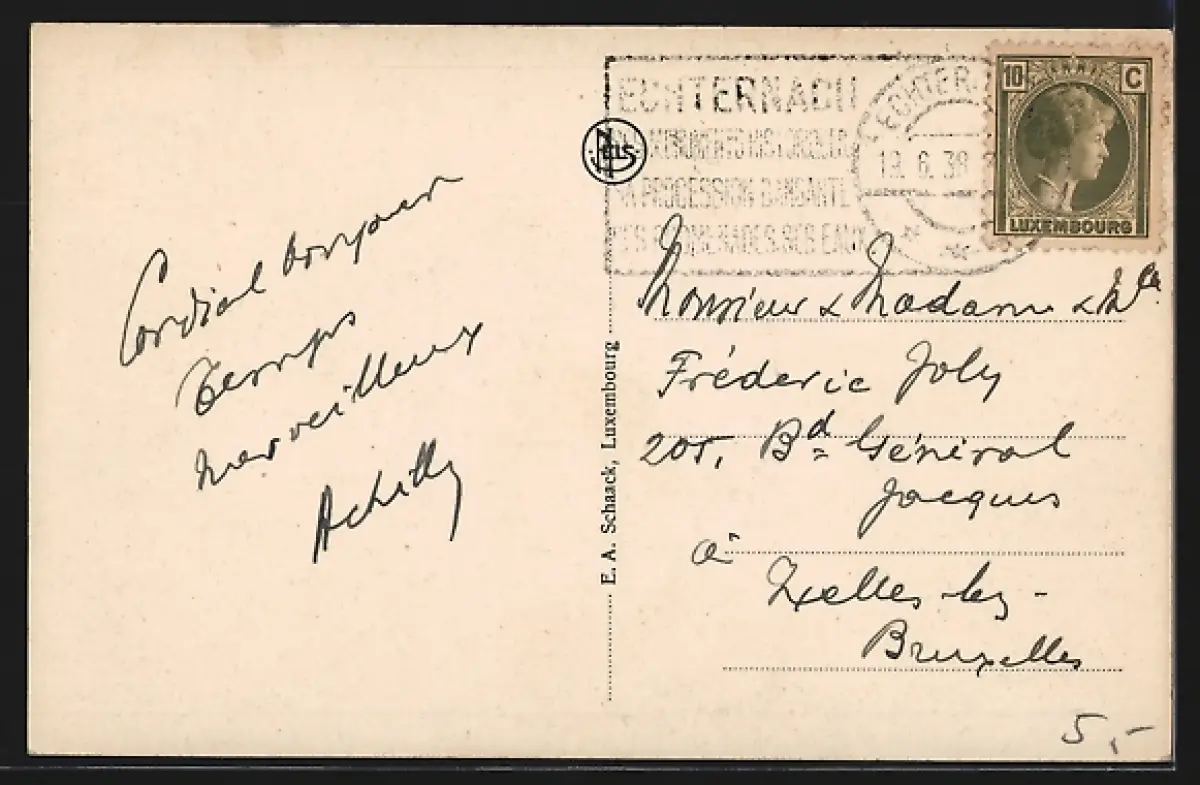 Cordial bonjour
Temps
merveilleux
ECHTERNACH
MONUMENTS HISTORIQUES
PROCESSION DANSANTE
PROMENADES SES EAUX
ECHTER
19.6.38
10 C
LUXEMBOURG
NELS
E. A. Schaack, Luxembourg
Monsieur & Madame & Mlle
Fréderic Joly
205, Bd Général
Jacques
à
Ixelles-lez-
Bruxelles
5,-